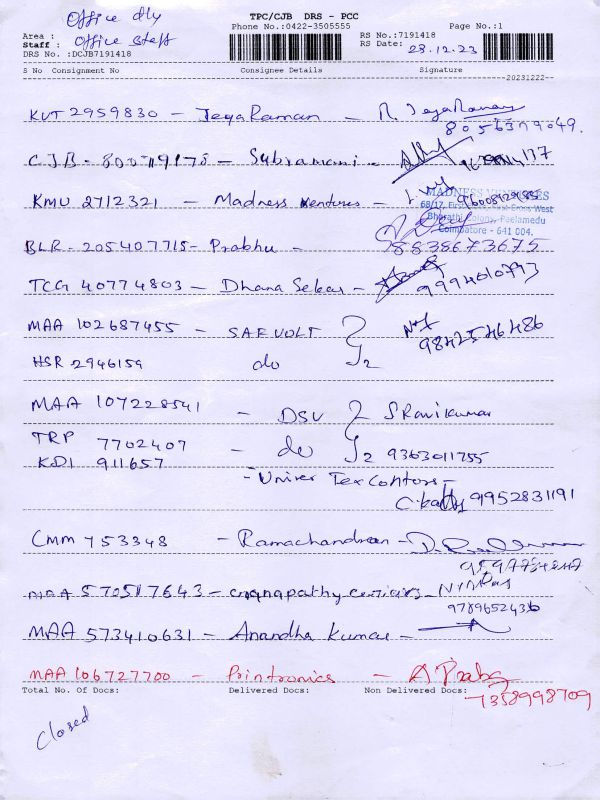 Office dly
TPC/CJB DRS - PCC
Phone No.:0422-3505555
Page No.:1
Area :
Staff : Office staff
DRS No. :DCJB7191418
RS No.:7191418
RS Date: 28.12.23
S No Consignment No Consignee Details Signature
20231222
KUT 2959830 - JeyaRaman - R. JeyaRaman
8056379049.
CJB - - Subramani -
KMU 2712321 - Madness ventures -
MADNESS VENTURES
68/17, First West
Bharathi Colony, Peelamedu
Coimbatore - 641 004.
BLR - 205407715 - Prabhu - 9883867 3675
TCG 40774803 - Dhana Sekar - 9994610793
MAA 102687455 - SAEVOLT } 2
9842546486
HSR 2946159 do
MAA 107228541 - DSV } 2 S Ravikumar
TRP 7702407 - do 9363011755
KDI 911657 - Univer Tex Contors -
9952831191
CMM 753348 - Ramachandran -
MAA 570517643 -
9789652436
MAA 573410631 - Anandha Kumar -
MAA 106727700 - Printronics - A Prabu
7358998709
Total No. Of Docs: Delivered Docs: Non Delivered Docs:
closed